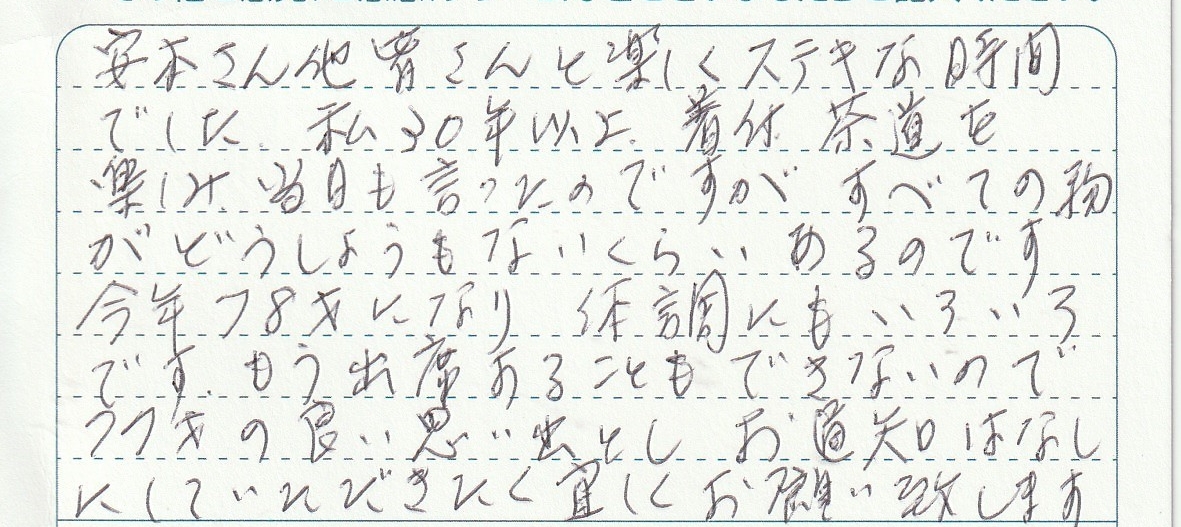 安本さん他皆さんと楽しくステキな時間
でした 私30年以上 着付 茶道を
楽しみ 当日も言ったのですが すべての物
がどうしようもないくらい あるのです
今年78才になり 体調にも いろいろ
です。もう出席あることもできないので
77才の良い思い出とし お道知はなし
にしていただきたく宜しくお願い致します